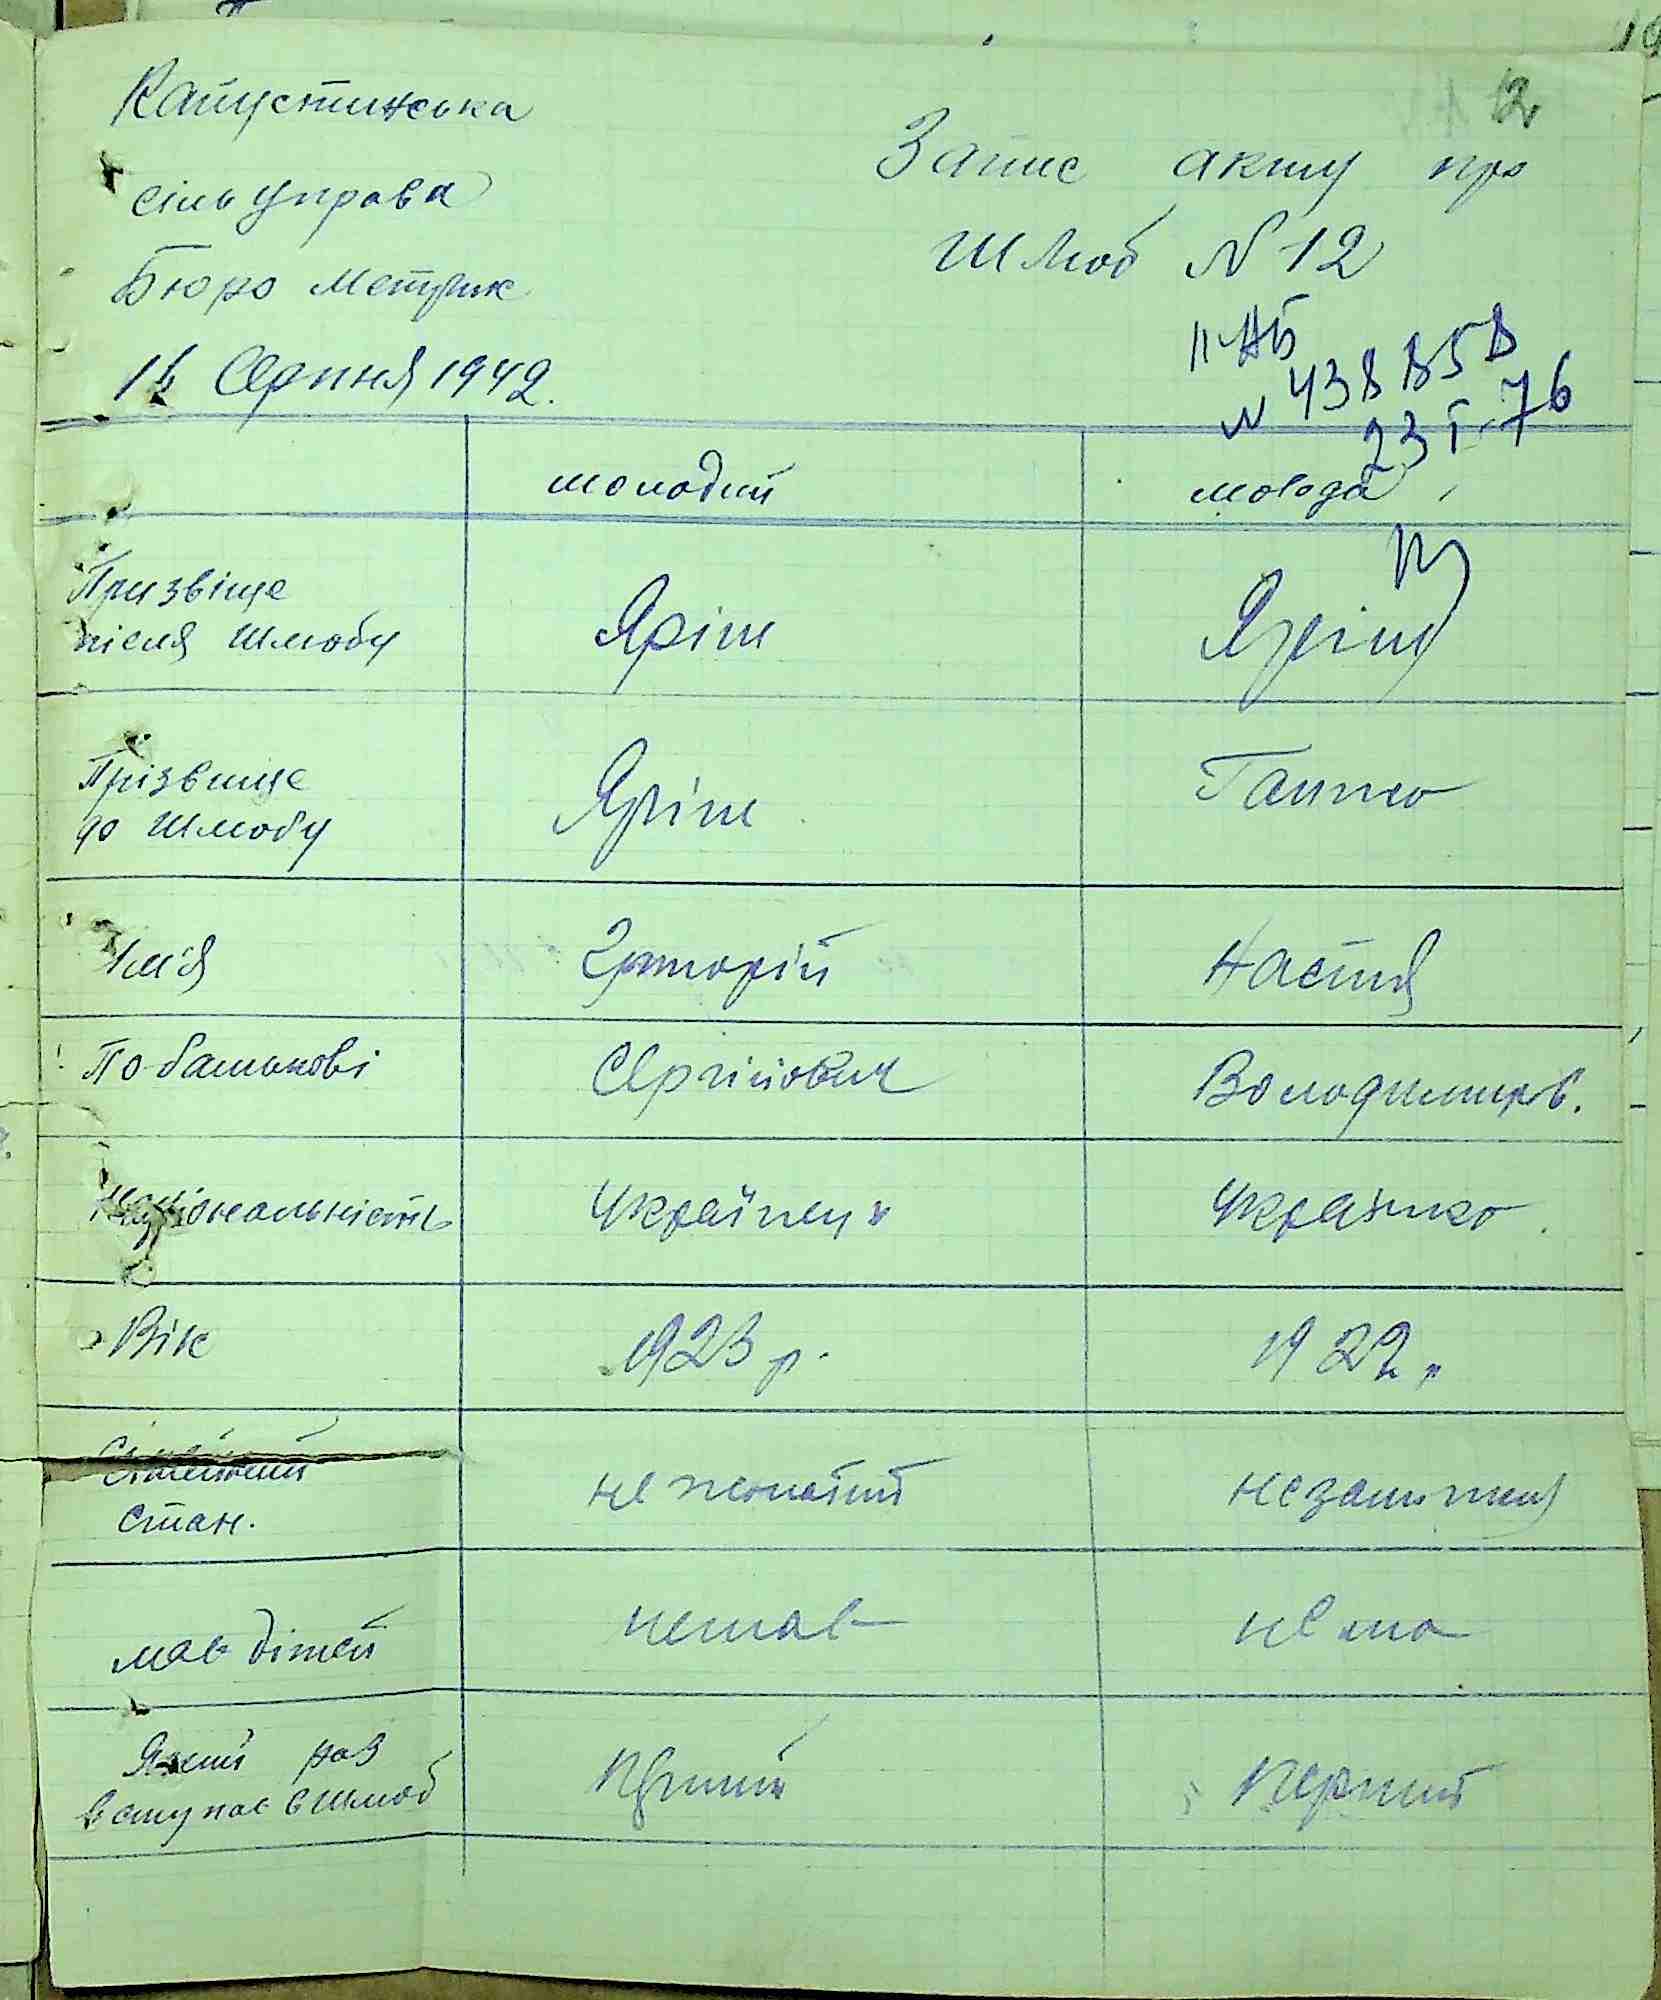 12
Капустинська
сільуправа
Бюро Метрик
16 Серпня 1942.
Запис акту про
Шлюб N 12
II-АБ
N 438858
23 I-76
молодий молода
Призвіще
після Шлюбу Яріш Яріш
Прізвище
до Шлюбу Яріш Ганко
Імя Григорій Настя
По-батькові Сергійович Володимиров.
Національність Українець Українка
Вік 1923 р. 1922 р
Сімейний
стан. не жонатий незамужня
мав дітей немав нема
Який раз
вступає в шлюб Перший Перший